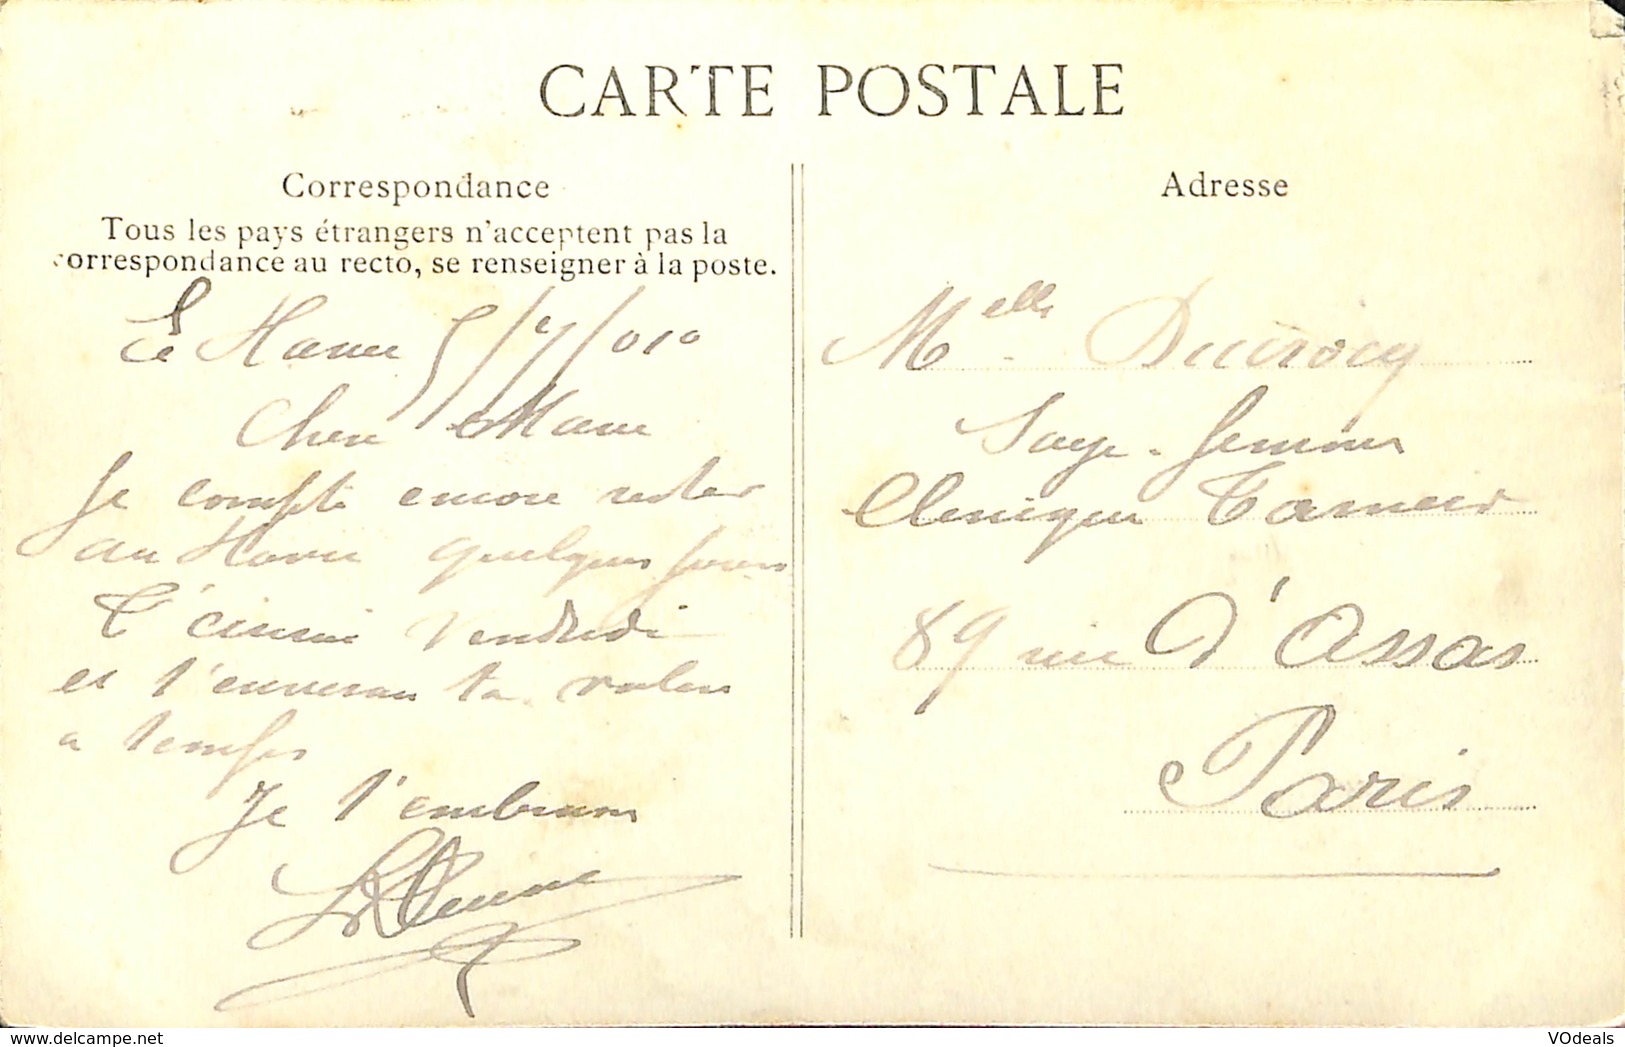 CARTE POSTALE
Correspondance
Tous les pays étrangers n'acceptent pas la
correspondance au recto, se renseigner à la poste.
Le Havre 5/7/010
Chère
Je compte encore rester
au Havre quelques jours
T'écrirai Vendredi
et t'enverrai ta
a temps
Je t'embrasse
Adresse
Melle Ducrocq
Sage-femme
Clenique Tarnier
89 rue d'Assas
Paris
VOdeals